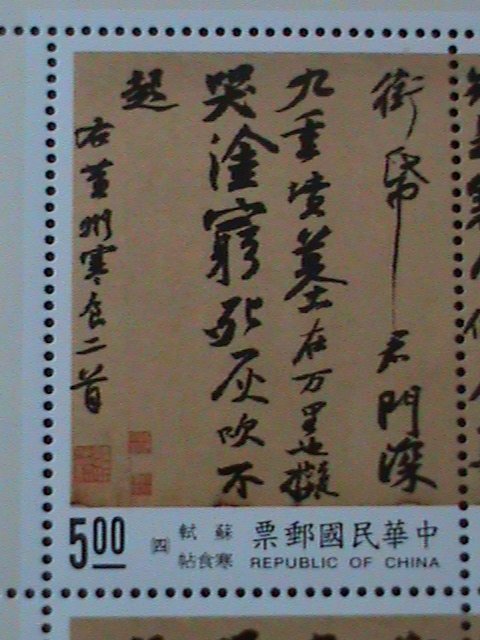 銜𢂿君門深
九重墳墓在万里也擬
哭塗窮死灰吹不
起
右黃州寒食二首
5.00
四
蘇軾
寒食帖
中華民國郵票
REPUBLIC OF CHINA